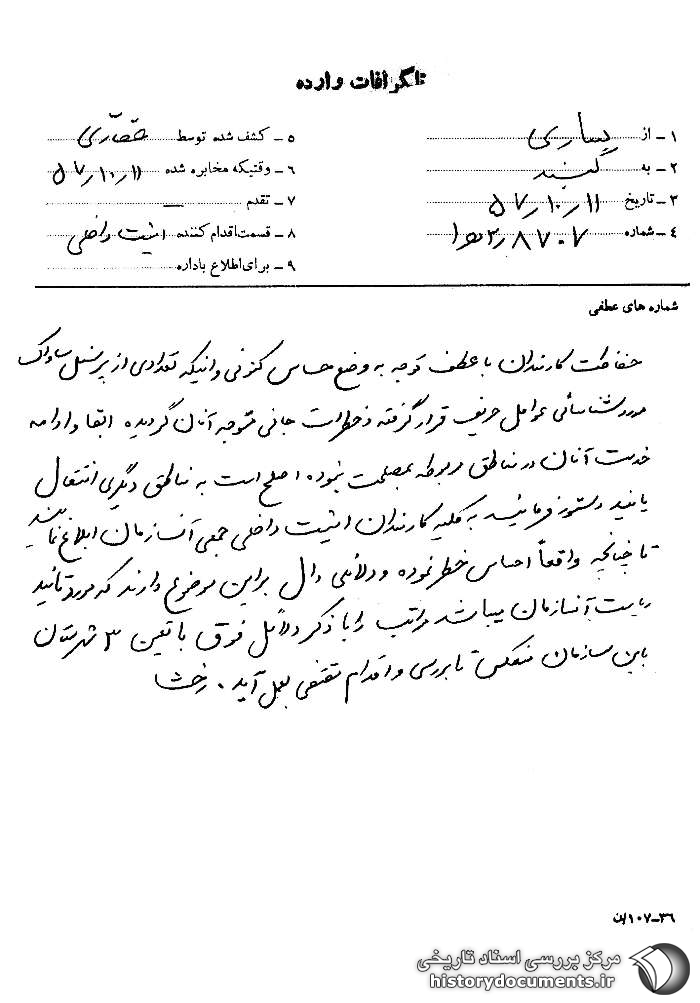 تلگرافات وارده
۱ - از ساری
۲ - به گنبد
۳ - تاریخ ۵۷٫۱۰٫۱۱
۴ - شماره ۸۷۰۷
۵ - کشف شده توسط
۶ - وقتیکه مخابره شده ۵۷٫۱۰٫۱۱
۷ - تقدم —
۸ - قسمت اقدام کننده امنیت داخلی
۹ - برای اطلاع باداره
شماره های عطفی
حفاظت کارمندان با عطف توجه به وضع حساس کنونی و اینکه تعدادی از پرسنل ساواک
مورد شناسائی عوامل حریف قرار گرفته و خطرات جانی متوجه آنان گردیده ابقا و ادامه
خدمت آنان در مناطق مربوطه بمصلحت نبوده اصلح است به مناطق دیگری انتقال
یابند دستور فرمائید به کلیه کارمندان امنیت داخلی جمعی آنسازمان ابلاغ نمایند
تا چنانچه واقعاً احساس خطر نموده و دلائلی دال بر این موضوع دارند که مورد تائید
ریاست آنسازمان میباشد مراتب را با ذکر دلائل فوق با تعین ۳ شهرستان
باین سازمان منعکس تا بررسی و اقدام مقتضی بعمل آید . رخشا
۳۶-۱۰۷
مرکز بررسی اسناد تاریخی
historydocuments.ir